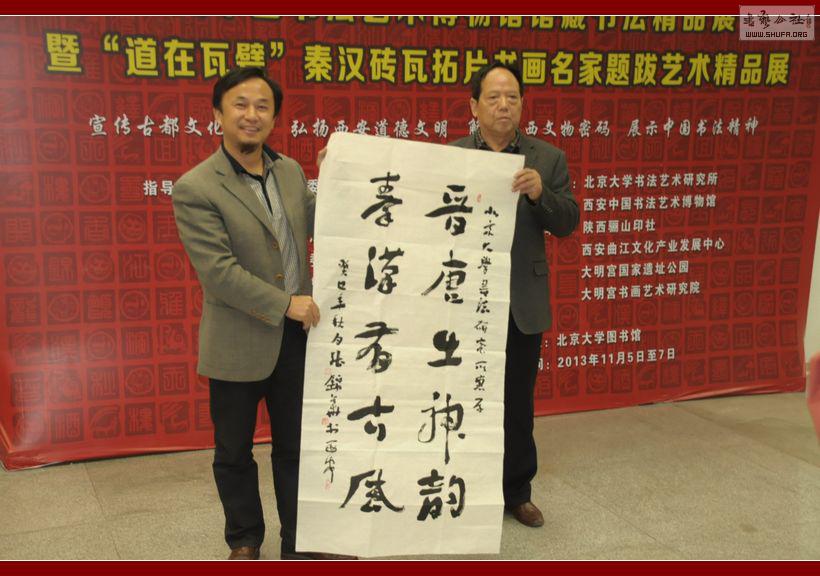 书法公社
WWW.SHUFA.ORG
书法艺术博物馆馆藏书法精品展
暨“道在瓦甓”秦汉砖瓦拓片书画名家题跋艺术精品展
宣传古都文化 弘扬西安道德文明 西文物密码 展示中国书法精神
指导
北京大学书法艺术研究所
西安中国书法艺术博物馆
陕西骊山印社
西安曲江文化产业发展中心
大明宫国家遗址公园
大明宫书画艺术研究院
：北京大学图书馆
间：2013年11月5日至7日
北京大学书法研究所惠存
晋唐生神韵
秦汉有古风
癸巳年秋月张锦